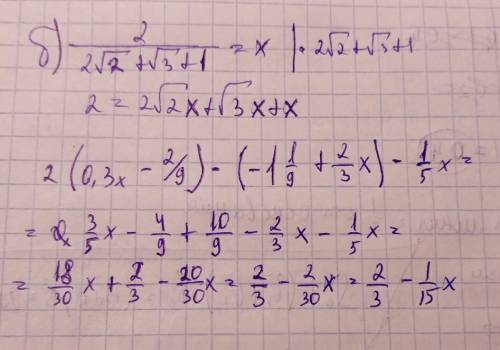 б) 2/(2√2 + √3 + 1) = x |· 2√2 + √3 + 1
2 = 2√2x + √3x + x
2 (0,3x - 2/9) - (-1 1/9 + 2/3 x) - 1/5 x =
= 3/5 x - 4/9 + 10/9 - 2/3 x - 1/5 x =
= 18/30 x + 2/3 - 20/30 x = 2/3 - 2/30 x = 2/3 - 1/15 x